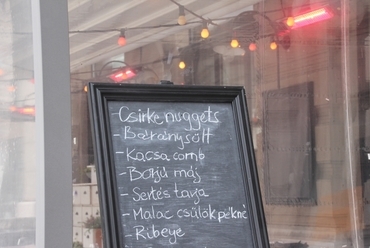 Csirke nuggets
- Báránysült
- Kacsa comb
- Borjú máj
- Sertés tarja
- Malac csülök pékné
- Ribeye